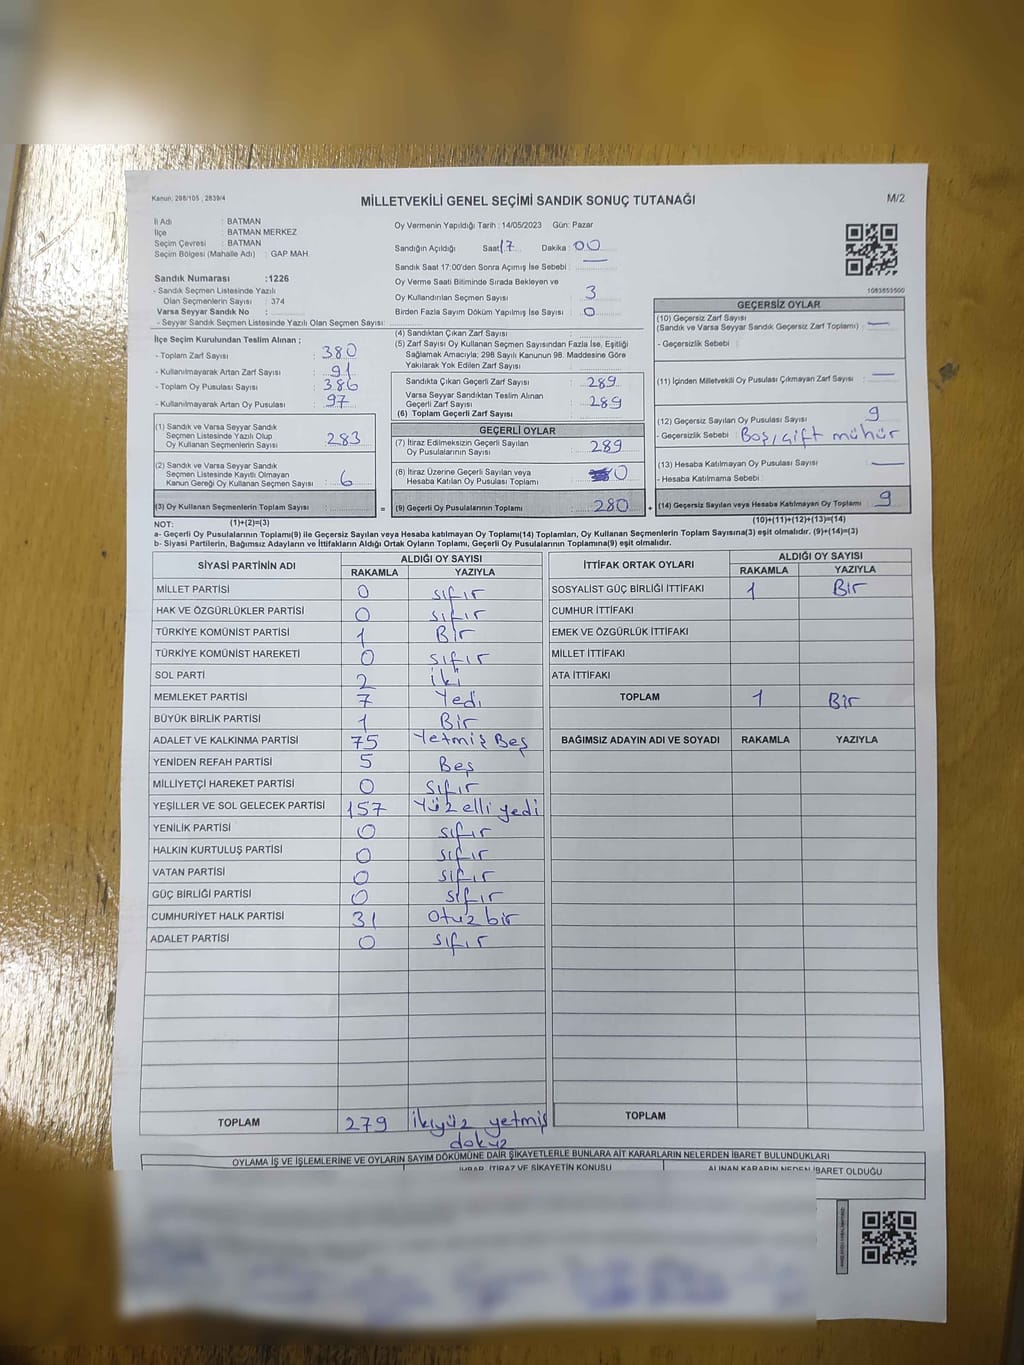 Kanun: 298/105 , 2839/4
MİLLETVEKİLİ GENEL SEÇİMİ SANDIK SONUÇ TUTANAĞI
M/2
İl Adı : BATMAN
İlçe : BATMAN MERKEZ
Seçim Çevresi : BATMAN
Seçim Bölgesi (Mahalle Adı) : GAP MAH.
Oy Vermenin Yapıldığı Tarih : 14/05/2023 Gün: Pazar
Sandığın Açıldığı Saat 17 Dakika : 00
Sandık Saat 17:00'den Sonra Açımış İse Sebebi : —
Sandık Numarası :1226
- Sandık Seçmen Listesinde Yazılı
Olan Seçmenlerin Sayısı : 374
Varsa Seyyar Sandık No :
- Seyyar Sandık Seçmen Listesinde Yazılı Olan Seçmen Sayısı:
Oy Verme Saati Bitiminde Sırada Bekleyen ve
Oy Kullandırılan Seçmen Sayısı : 3
Birden Fazla Sayım Döküm Yapılmış İse Sayısı : 0
1083853500
İlçe Seçim Kurulundan Teslim Alınan ;
- Toplam Zarf Sayısı : 380
- Kullanılmayarak Artan Zarf Sayısı : 91
- Toplam Oy Pusulası Sayısı : 386
- Kullanılmayarak Artan Oy Pusulası : 97
(1) Sandık ve Varsa Seyyar Sandık
Seçmen Listesinde Yazılı Olup
Oy Kullanan Seçmenlerin Sayısı : 283
(2) Sandık ve Varsa Seyyar Sandık
Seçmen Listesinde Kayıtlı Olmayan
Kanun Gereği Oy Kullanan Seçmen Sayısı : 6
(3) Oy Kullanan Seçmenlerin Toplam Sayısı :
(4) Sandıktan Çıkan Zarf Sayısı :
(5) Zarf Sayısı Oy Kullanan Seçmen Sayısından Fazla İse, Eşitliği
Sağlamak Amacıyla; 298 Sayılı Kanunun 98. Maddesine Göre
Yakılarak Yok Edilen Zarf Sayısı :
Sandıkta Çıkan Geçerli Zarf Sayısı : 289
Varsa Seyyar Sandıktan Teslim Alınan
Geçerli Zarf Sayısı : 289
(6) Toplam Geçerli Zarf Sayısı :
GEÇERLİ OYLAR
(7) İtiraz Edilmeksizin Geçerli Sayılan
Oy Pusulalarının Sayısı : 289
(8) İtiraz Üzerine Geçerli Sayılan veya
Hesaba Katılan Oy Pusulası Toplamı : 0
= (9) Geçerli Oy Pusulalarının Toplamı : 280 +
GEÇERSİZ OYLAR
(10) Geçersiz Zarf Sayısı
(Sandık ve Varsa Seyyar Sandık Geçersiz Zarf Toplamı) : —
- Geçersizlik Sebebi :
(11) İçinden Milletvekili Oy Pusulası Çıkmayan Zarf Sayısı : —
(12) Geçersiz Sayılan Oy Pusulası Sayısı : 9
- Geçersizlik Sebebi : Boş, çift mühür
(13) Hesaba Katılmayan Oy Pusulası Sayısı : —
- Hesaba Katılmama Sebebi :
(14) Geçersiz Sayılan veya Hesaba Katılmayan Oy Toplamı : 9
NOT: (1)+(2)=(3) (10)+(11)+(12)+(13)=(14)
a- Geçerli Oy Pusulalarının Toplamı(9) ile Geçersiz Sayılan veya Hesaba katılmayan Oy Toplamı(14) Toplamları, Oy Kullanan Seçmenlerin Toplam Sayısına(3) eşit olmalıdır. (9)+(14)=(3)
b- Siyasi Partilerin, Bağımsız Adayların ve İttifakların Aldığı Ortak Oyların Toplamı, Geçerli Oy Pusulalarının Toplamına(9) eşit olmalıdır.
SİYASİ PARTİNİN ADI ALDIĞI OY SAYISI
RAKAMLA YAZIYLA
MİLLET PARTİSİ 0 sıfır
HAK VE ÖZGÜRLÜKLER PARTİSİ 0 sıfır
TÜRKİYE KOMÜNİST PARTİSİ 1 Bir
TÜRKİYE KOMÜNİST HAREKETİ 0 sıfır
SOL PARTİ 2 iki
MEMLEKET PARTİSİ 7 Yedi
BÜYÜK BİRLİK PARTİSİ 1 Bir
ADALET VE KALKINMA PARTİSİ 75 Yetmiş Beş
YENİDEN REFAH PARTİSİ 5 Beş
MİLLİYETÇİ HAREKET PARTİSİ 0 sıfır
YEŞİLLER VE SOL GELECEK PARTİSİ 157 Yüz elli yedi
YENİLİK PARTİSİ 0 sıfır
HALKIN KURTULUŞ PARTİSİ 0 sıfır
VATAN PARTİSİ 0 sıfır
GÜÇ BİRLİĞİ PARTİSİ 0 sıfır
CUMHURİYET HALK PARTİSİ 31 Otuz bir
ADALET PARTİSİ 0 sıfır
TOPLAM 279 ikiyüz yetmiş
dokuz
İTTİFAK ORTAK OYLARI ALDIĞI OY SAYISI
RAKAMLA YAZIYLA
SOSYALİST GÜÇ BİRLİĞİ İTTİFAKI 1 Bir
CUMHUR İTTİFAKI
EMEK VE ÖZGÜRLÜK İTTİFAKI
MİLLET İTTİFAKI
ATA İTTİFAKI
TOPLAM 1 Bir
BAĞIMSIZ ADAYIN ADI VE SOYADI RAKAMLA YAZIYLA
TOPLAM
OYLAMA İŞ VE İŞLEMLERİNE VE OYLARIN SAYIM DÖKÜMÜNE DAİR ŞİKAYETLERLE BUNLARA AİT KARARLARIN NELERDEN İBARET BULUNDUKLARI
İHBAR, İTİRAZ VE ŞİKAYETİN KONUSU ALINAN KARARIN NEDEN İBARET OLDUĞU